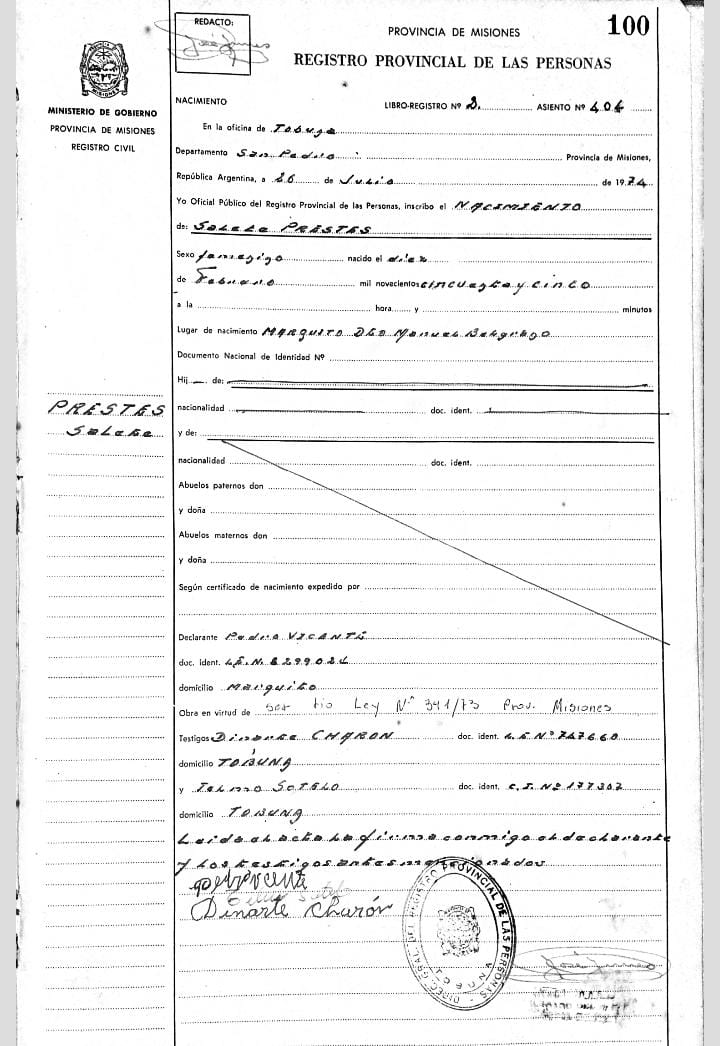 REDACTO:
José
PROVINCIA DE MISIONES
100
REGISTRO PROVINCIAL DE LAS PERSONAS
MINISTERIO DE GOBIERNO
PROVINCIA DE MISIONES
REGISTRO CIVIL
NACIMIENTO
LIBRO-REGISTRO Nº 2. ASIENTO Nº 404
En la oficina de Tobuna
Departamento San Pedro Provincia de Misiones,
República Argentina, a 26 de Julio de 1974
Yo Oficial Público del Registro Provincial de las Personas, inscribo el NACIMIENTO
de: Salete PRESTES
Sexo nacido el diez
de Febrero mil novecientos cincuenta y cinco
a la hora y minutos
Lugar de nacimiento Dto Manuel Belgrano
Documento Nacional de Identidad Nº
Hij de:
PRESTES
Salete
nacionalidad doc. ident.
y de:
nacionalidad doc. ident.
Abuelos paternos don
y doña
Abuelos maternos don
y doña
Según certificado de nacimiento expedido por
Declarante Pedro VICENTE
doc. ident. L.E.N.
domicilio
Obra en virtud de ser tio Ley Nº 391/73 Prov. Misiones
Testigos Dinarte CHARON doc. ident. L.E Nº 747660
domicilio TOBUNA
y Telmo SOTELO doc. ident. C.I. Nº 177307
domicilio TOBUNA
Leida el acta la firma conmigo el declarante
y los testigos antes mencionados
Dinarte Charón
DIREC. GRAL. DEL REGISTRO PROVINCIAL DE LAS PERSONAS
TOBUNA
José